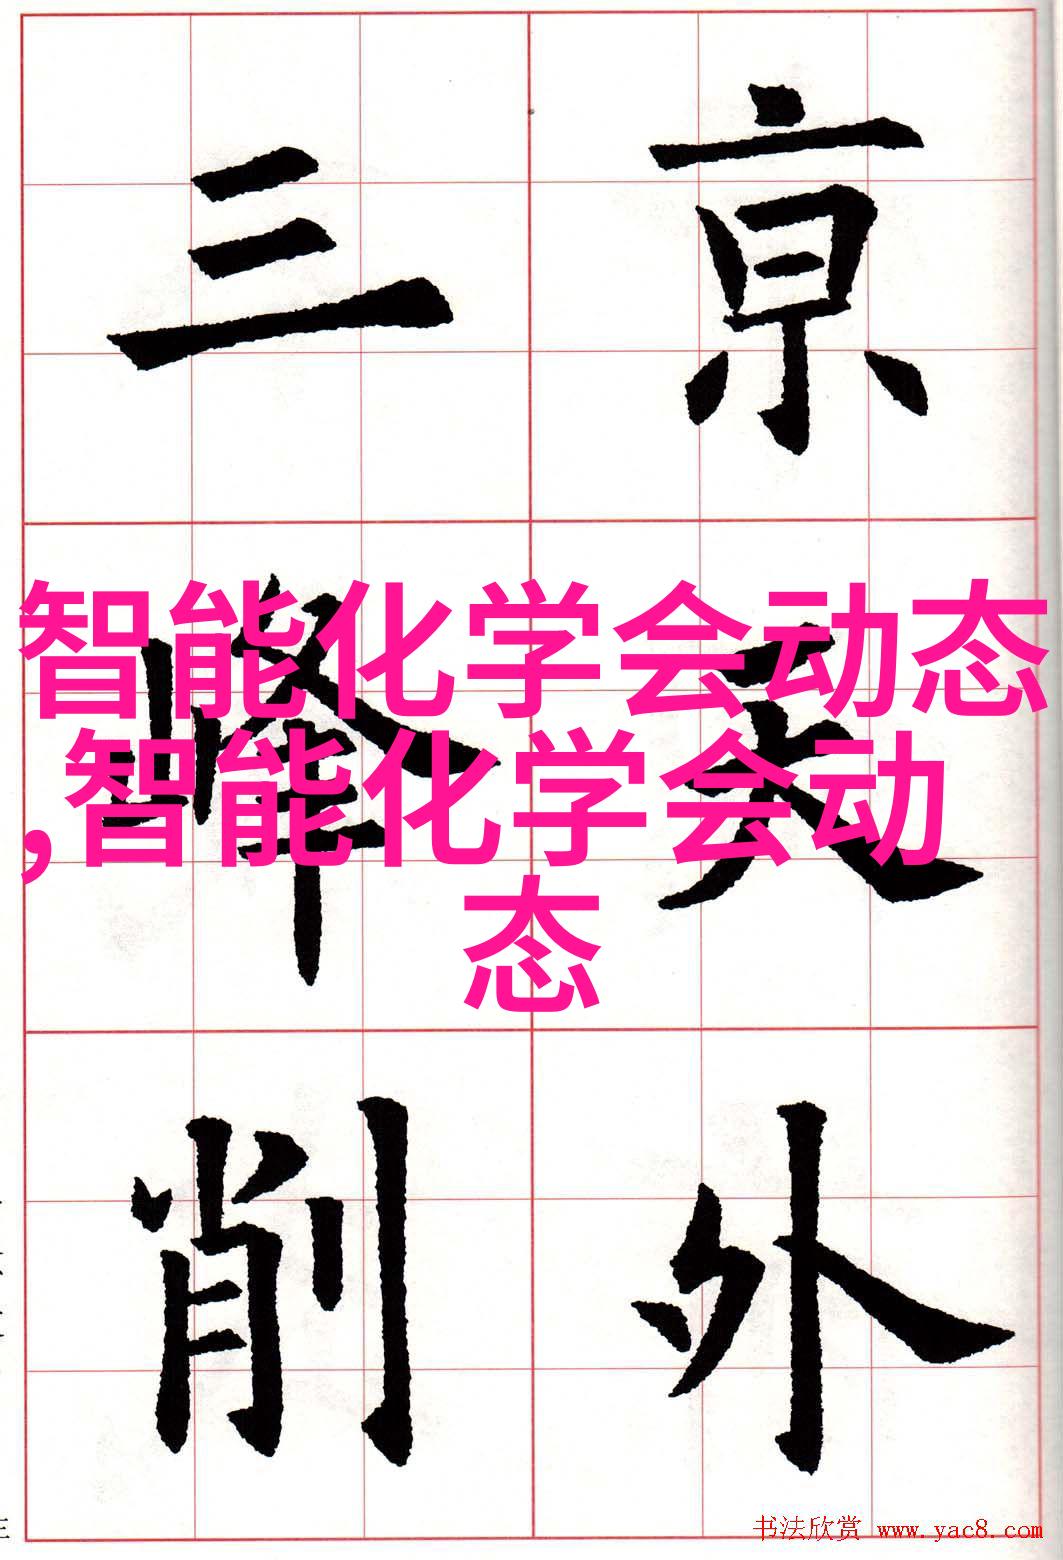 亰天外
三峰削
智能化学会动态
,智能化学会动
态
书法欣赏 www.yac8.com